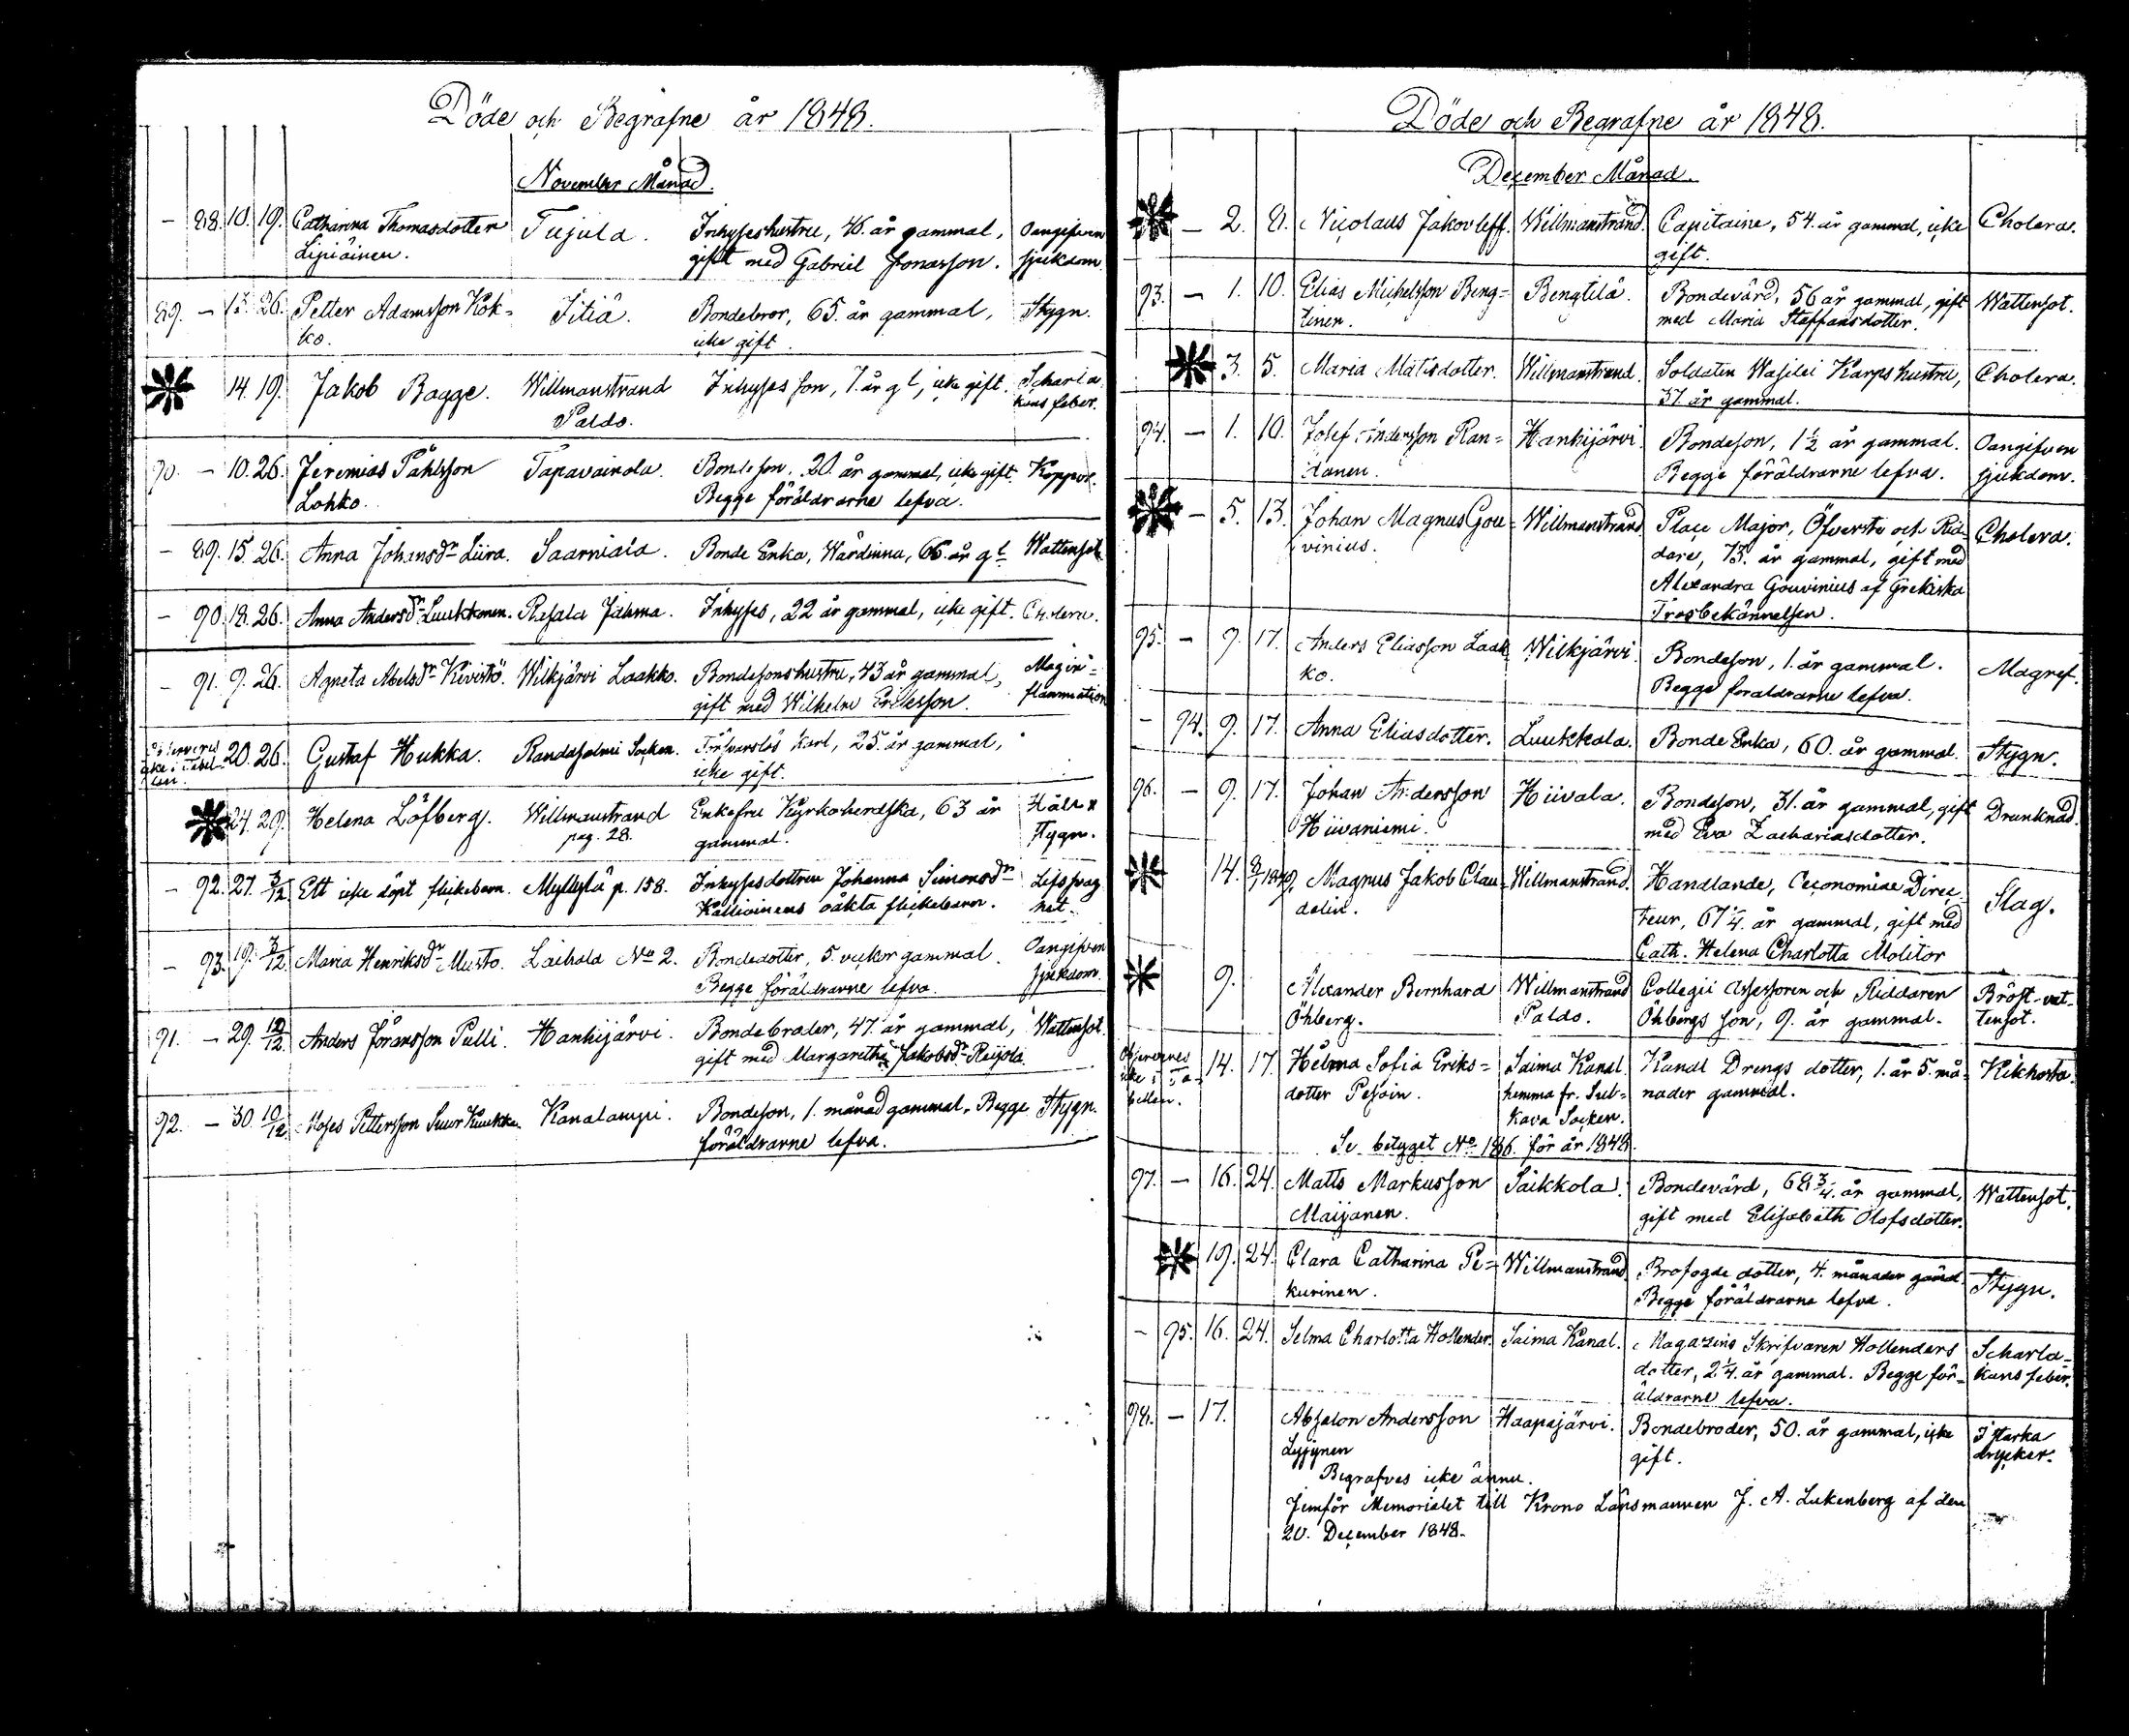 Döde och Begrafne år 1848.
November Månad.
— 88. 10. 19. Catharina Thomasdotter Tujula. Inhyseshustru, 46. år gammal, Oangifven
Lipiäinen. gift med Gabriel Jonasson. sjukdom
89. — 26. Petter Adamsson Kok= Iitiä. Bondebror, 65. år gammal, Stygn.
ko. icke gift.
14. 19. Jakob Bagge. Willmanstrand Inhyses son, 7. år gl, icke gift. Scharla
Paldo. kans feber.
90. — 10. 26. Jeremias Påhlsson Tapavainola. Bondeson. 20. år gammal, icke gift. Koppor.
Lohko. Begge föräldrarne lefva.
— 89. 15. 26. Anna Johansdr Liira. Saarniala. Bonde Enka, Wärdinna, 66. år gl Wattensot
— 90. 18. 26. Anna Andersdr Luukkonen. Inhyses, 22 år gammal, icke gift. Cholera.
— 91. 9. 26. Agneta Abelsdr Kivistö. Wilkjärvi Laakko. Bondesonshustru, 43 år gammal, Magin=
gift med Wilhelm Eriksson. flammation
icke i Tabel-
len. 20. 26. Gustaf Hukka. Randasalmi Socken. Förfvarslös Karl, 25. år gammal,
icke gift.
24. 29. Helena Löfberg. Willmanstrand Enkefru Kyrkoherdska, 63 år Håll x
pag. 28. gammal. Stygn.
— 92. 27. 3/12 Ett icke döpt flickebarn. Myllylä p. 158. Inhysesdottren Johanna Simonsdr Lifssvag
oäkta flickebarn. het.
— 93. 19. 3/12 Maria Henriksdr Musto. Laihala No 2. Bondedotter, 5. vickor gammal. Oangifven
Begge föräldrarne lefva. sjukdom.
91. — 29. 12/12 Anders Jöransson Pulli. Hankijärvi. Bondebroder, 47. år gammal, Wattensot.
gift med Margaretha Jakobsdr Reijola.
92. — 30. 10/12 Moses Pettersson Suur Kuukka Kanalampi. Bondeson, 1. månad gammal. Begge Stygn.
föräldrarne lefva.
Döde och Begrafne år 1848.
December Månad.
— 2. 8. Nicolaus Jakovleff. Willmanstrand. Capitaine, 54. år gammal, icke Cholera.
gift.
93. — 1. 10. Elias Michelsson Beng= Bengtilä. Bondevärd, 56 år gammal, gift Wattensot.
tinen. med Maria Staffansdotter.
3. 5. Maria Matisdotter. Willmanstrand. Soldaten Wasilei Karps hustru, Cholera.
37 år gammal.
94. — 1. 10. Josef Andersson Ran= Hankijärvi. Bondeson, 1 1/2 år gammal. Oangifven
danen. Begge föräldrarne lefva. sjukdom.
— 5. 13. Johan Magnus Gou= Willmanstrand Place Major, Öfverste och Rid- Cholera.
vinius. dare, 73. år gammal, gift med
Alexandra Gouvinius af Grekiska
Trosbekännelsen.
95. — 9. 17. Anders Eliasson Laak Wilkjärvi. Bondeson, 1. år gammal. Magref.
ko. Begge föraldrarne lefva.
— 94. 9. 17. Anna Eliasdotter. Luukkala. Bonde Enka, 60. år gammal. Stygn.
96. — 9. 17. Johan Andersson Hiivala. Bondeson, 31. år gammal, gift Drunknad.
Hiivaniemi. med Eva Zachariasdotter.
14. 8/1 1849. Magnus Jakob Clau= Willmanstrand. Handlande, Oeconomiae Direc- Slag.
delin. teur, 67 1/4. år gammal, gift med
Cath. Helena Charlotta Molitor
9. Alexander Bernhard Willmanstrand Collegii Assessoren och Riddaren Bröst-vat-
Öhberg. Paldo. Öhbergs son, 9. år gammal. tensot.
Observeres
icke i Ta-
bellen. 14. 17. Helma Sofia Eriks= Saima Kanal. Kanal Drengs dotter, 1. år 5. må- Kikhosta.
dotter Pesoin. hemma fr. Sul= nader gammal.
kava Socken.
Se betyget No 186 för år 1848.
97. — 16. 24. Matts Markusson Saikkola. Bondevärd, 68 3/4. år gammal, Wattensot.
Maijanen. gift med Elisabeth Olofsdotter.
19. 24. Clara Catharina Pe= Willmanstrand Brofogde dotter, 4. månader gamal. Stygn.
kurinen. Begge föräldrarne lefva.
— 95. 16. 24. Selma Charlotta Hollender. Saima Kanal. Magazins Skrifvaren Hollenders Scharla=
dotter, 2 1/4. år gammal. Begge för= kans feber.
äldrarne lefva.
98. — 17. Absalon Andersson Haapajärvi. Bondebroder, 50. år gammal, icke I starka
Lyijynen gift. drycker.
Begrafves icke ännu.
Jemför Memorialet till Krono Länsmannen J. A. Lukenberg af den
20. December 1848.